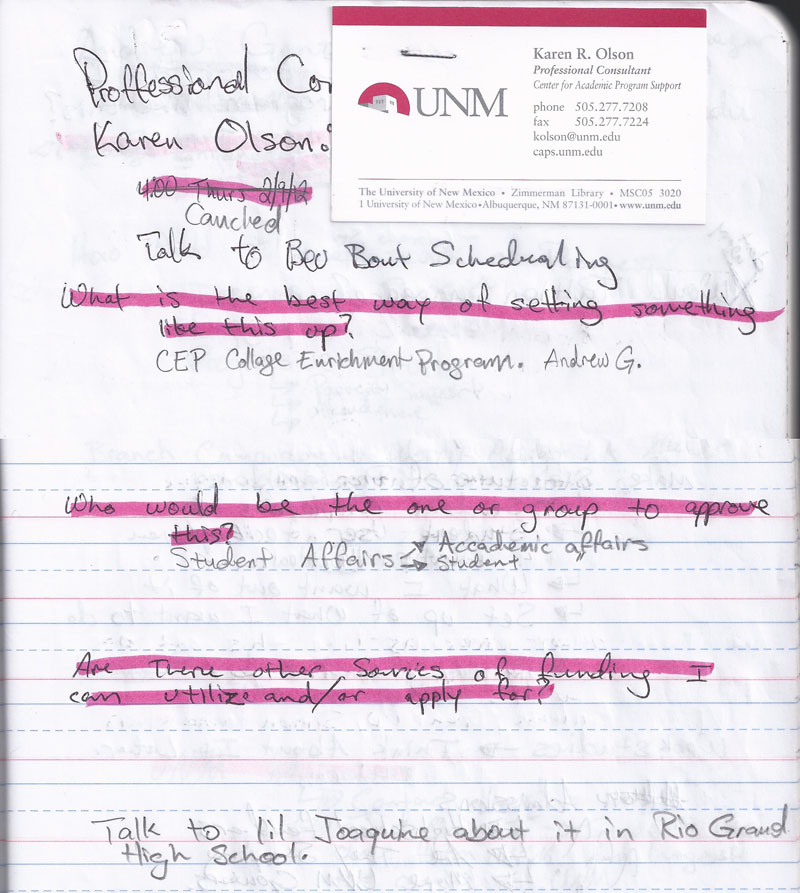 Proffessional Co
Karen Olson:
UNM
Karen R. Olson
Professional Consultant
Center for Academic Program Support
phone 505.277.7208
fax 505.277.7224
kolson@unm.edu
caps.unm.edu
The University of New Mexico • Zimmerman Library • MSC05 3020
1 University of New Mexico • Albuquerque, NM 87131-0001 • www.unm.edu
4:00 Thurs 2/9/12
Cancled
Talk to Bev Bout Schedualing
What is the best way of setting something
like this up?
CEP Collage Enrichment Program. Andrew G.
Who would be the one or group to approve
this?
Student Affairs → Accademic affairs
→ Student "
Are There other Sources of funding I
can utilize and/or apply for?
Talk to lil Joaquine about it in Rio Grand
High School.